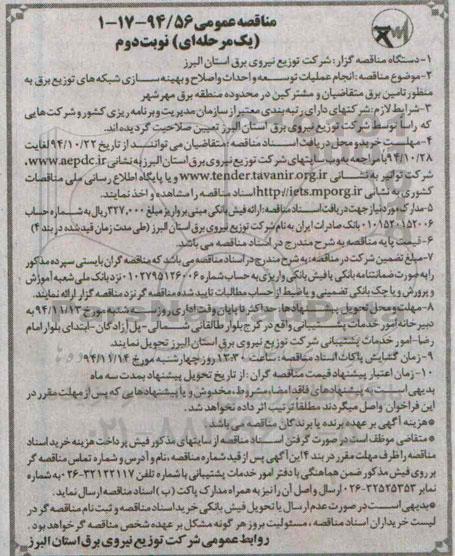 مناقصه عمومی ۹۴/۵۶-۱۷-۱
(یک مرحله‌ای) نوبت دوم
۱-دستگاه مناقصه گزار: شرکت توزیع نیروی برق استان البرز
۲-موضوع مناقصه: انجام عملیات توسعه و احداث و اصلاح و بهینه سازی شبکه‌های توزیع برق به
منظور تامین برق متقاضیان و مشترکین در محدوده منطقه برق مهرشهر
۳-شرایط لازم: شرکتهای دارای رتبه‌بندی معتبر از سازمان مدیریت و برنامه ریزی کشور و شرکت‌هایی
که راسا توسط شرکت توزیع نیروی برق استان البرز تعیین صلاحیت گردیده‌اند.
۴-مهلت خرید و محل دریافت اسناد مناقصه: متقاضیان می‌توانند از تاریخ ۹۴/۱۰/۲۲ لغایت
۹۴/۱۰/۲۸ با مراجعه به وب سایتهای شرکت توزیع نیروی برق استان البرز به نشانی www.aepdc.ir،
شرکت توانیر به نشانی www.tender.tavanir.org.ir و یا پایگاه اطلاع رسانی ملی مناقصات
کشوری به نشانی http://iets.mporg.ir اسناد مناقصه را مشاهده و اخذ نمایند.
۵-مدارک مورد نیاز جهت دریافت اسناد مناقصه: ارائه فیش بانکی مبنی بر واریز مبلغ ۳۲۷,۰۰۰ ریال به شماره حساب
بانک صادرات ایران به نام شرکت توزیع نیروی برق استان البرز (طی مدت زمان قید شده در بند ۴)
۶-قیمت پایه مناقصه به شرح مندرج در اسناد مناقصه می باشد.
۷-مبلغ تضمین شرکت در مناقصه: به شرح مندرج در اسناد مناقصه می‌باشد که مناقصه گران بایستی سپرده مذکور
را به صورت ضمانتنامه بانکی یا فیش بانکی واریزی به حساب شماره ۰۱۰۲۷۹۵۱۲۶۰۰۶ نزد بانک ملی شعبه آموزش
و پرورش و یا چک بانکی تضمینی و یا ضبط از حساب مطالبات تایید شده مناقصه گر نزد مناقصه گزار ارائه نمایند.
۸-مهلت و محل تحویل پیشنهادها: حداکثر تا پایان وقت اداری روز سه شنبه مورخ ۹۴/۱۱/۱۳ به
دبیرخانه امور خدمات پشتیبانی واقع در کرج بلوار طالقانی شمالی-پل آزادگان-ابتدای بلوار امام
رضا-امور خدمات پشتیبانی شرکت توزیع نیروی برق استان البرز تحویل نمایند.
۹-زمان گشایش پاکات اسناد مناقصه: ساعت ۱۲:۳۰ روز چهارشنبه مورخ ۹۴/۱۱/۱۴
۱۰-زمان اعتبار پیشنهاد قیمت مناقصه گران: از تاریخ تحویل پیشنهاد بمدت سه ماه
بدیهی است به پیشنهادهای فاقد امضا، مشروط، مخدوش و یا پیشنهادهایی که پس از مهلت مقرر در
این فراخوان واصل میگردند مطلقا ترتیب اثر داده نخواهد شد.
*هزینه آگهی بر عهده برنده یا برندگان مناقصه می باشد.
*متقاضی موظف است در صورت گرفتن اسناد مناقصه از سایتهای مذکور فیش پرداخت هزینه خرید اسناد
مناقصه را ظرف مهلت مقرر در بند ۴ این آگهی پس از قید شماره مناقصه، نام و آدرس و شماره تماس مناقصه گر
بر روی فیش مذکور ضمن هماهنگی با دفتر امور خدمات پشتیبانی با شماره تلفن ۰۲۶-۳۲۱۲۲۱۱۷ به شماره
نمابر ۰۲۶-۳۲۵۲۵۳۵۳ ارسال و اصل آن را نیز به همراه مدارک پاکت (ب) اسناد مناقصه ارسال نماید.
*بدیهی است در صورت عدم ارسال یا تحویل فیش بانکی خرید اسناد مناقصه و ثبت نام مناقصه گر در
لیست خریداران اسناد مناقصه، مسئولیت بروز هر گونه مشکل بر عهده شخص مناقصه گر خواهد بود.
روابط عمومی شرکت توزیع نیروی برق استان البرز